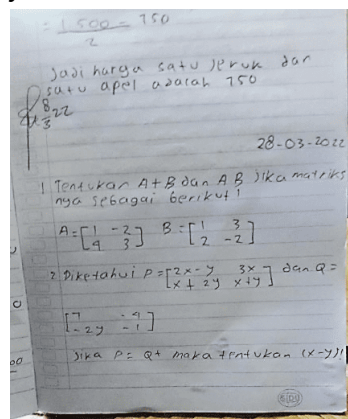 = 1.500 = 750
2
Jadi harga satu jeruk dan
satu apel adalah 750
8/3 22
28-03-2022
1 Tentukan A+B dan AB jika matriks
nya sebagai berikut!
A=[1 -2 B=[1 3
4 3] 2 -2]
2 Diketahui P=[2x-y 3x dan Q=
x+2y x+y]
[7 -9
-2y -1]
Jika P= Qt maka tentukan (x-y)!